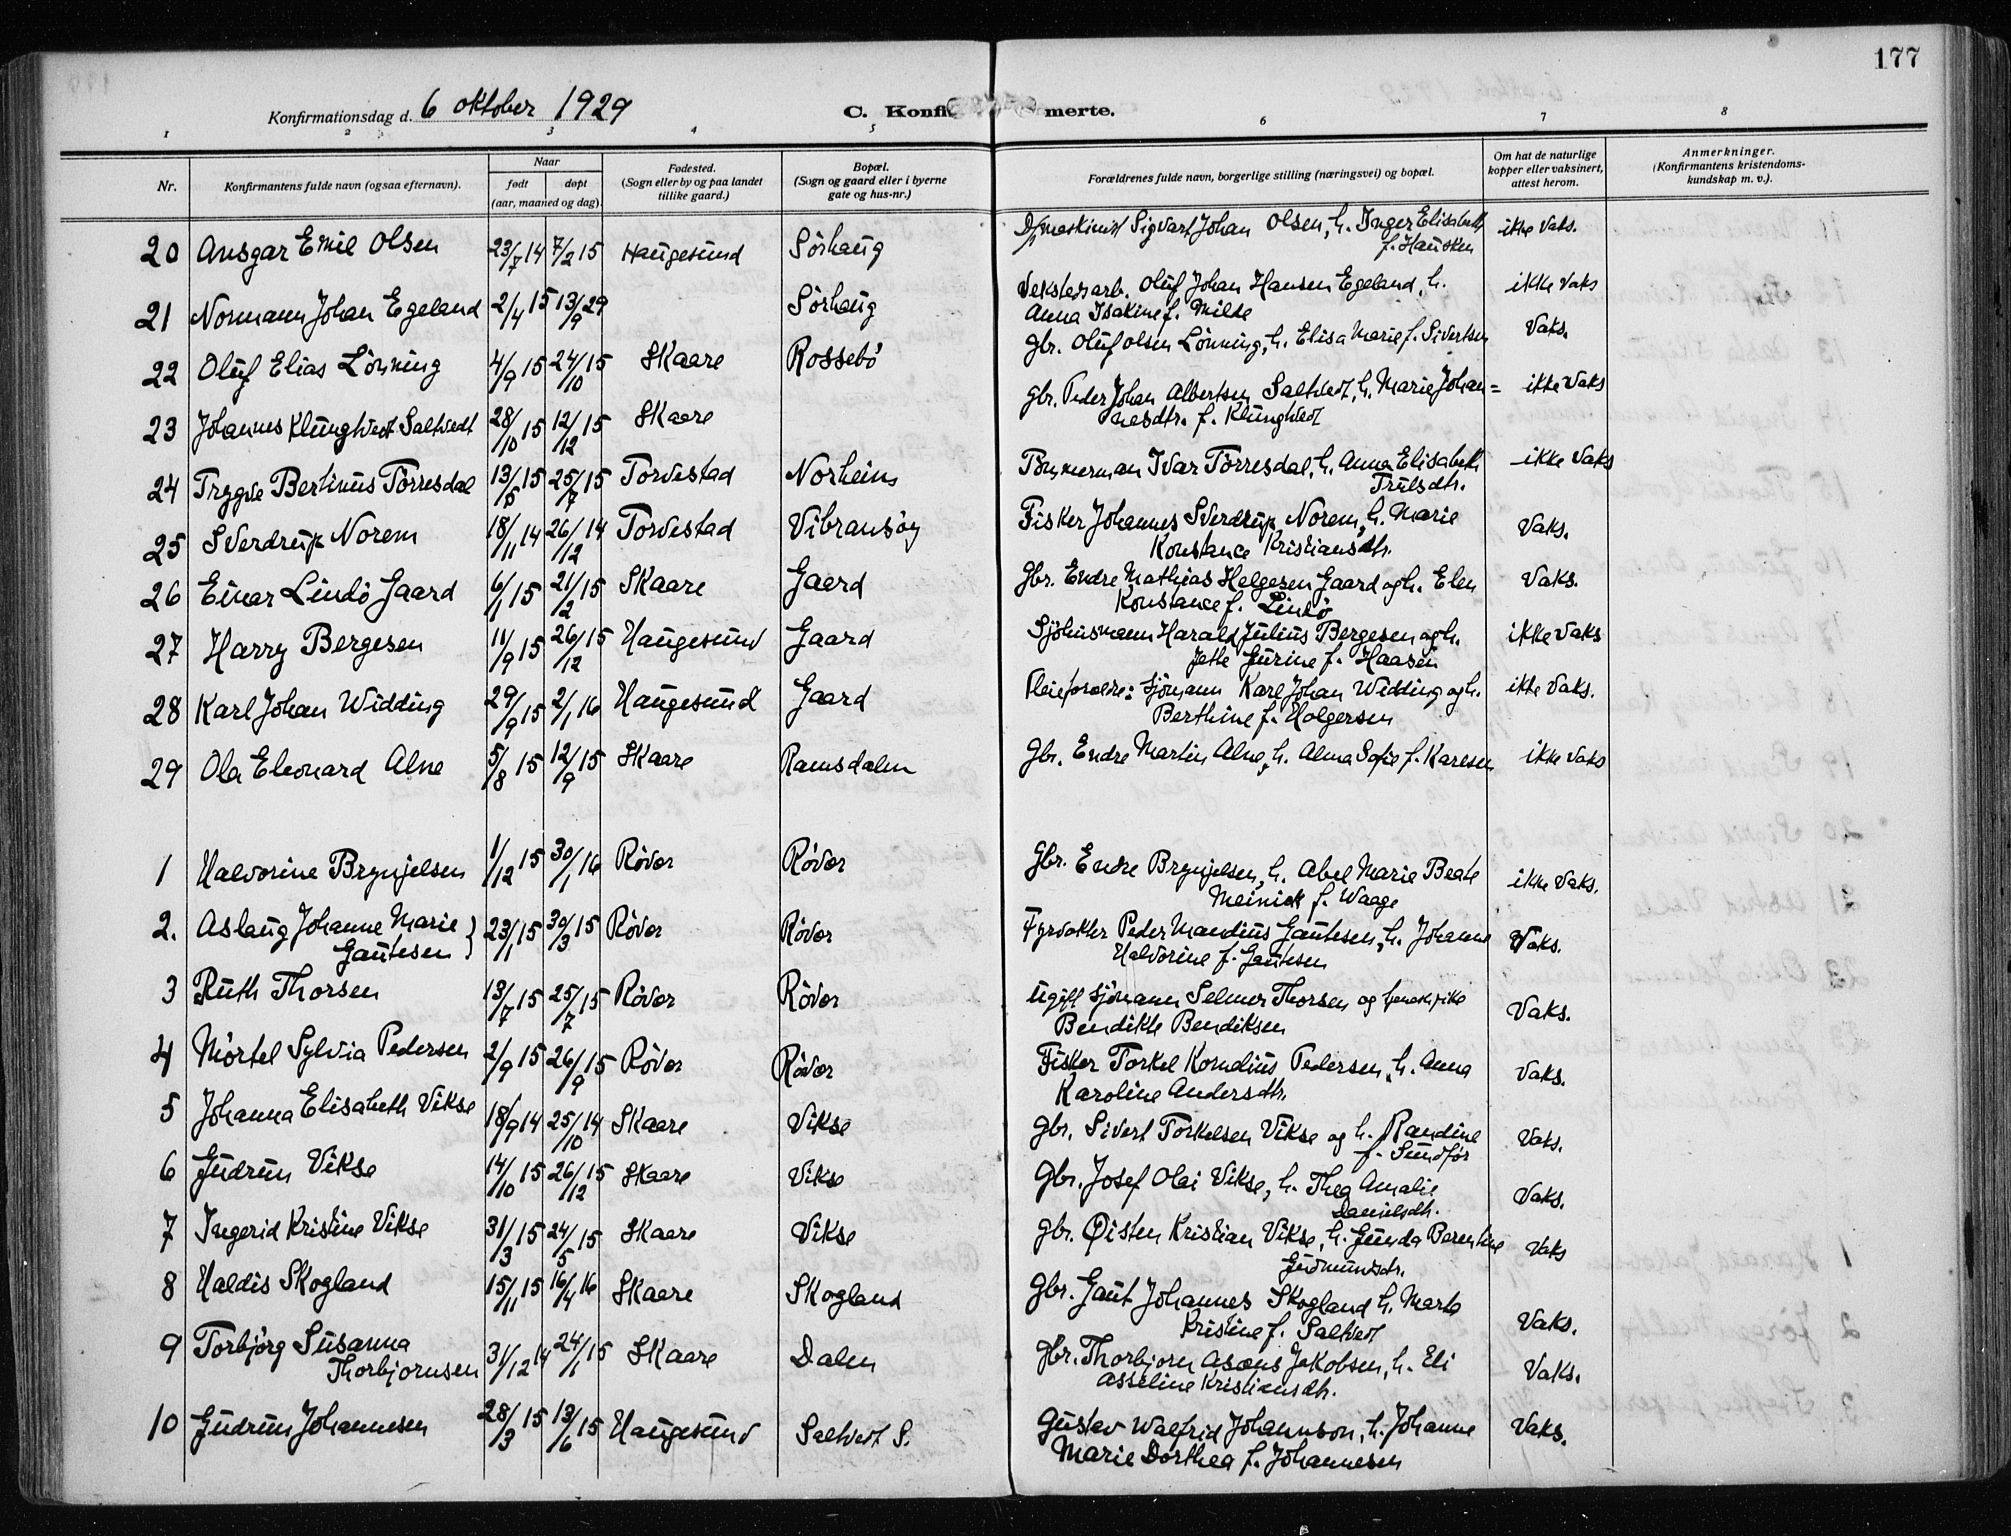 177
Konfirmationsdag d. 6 oktober 1929 C. Konfi merte.
1 2 3 4 5 6 7 8
Nr. Konfirmantens fulde navn (ogsaa efternavn). Naar født døpt (aar, maaned og dag). Fødested. (Sogn eller by og paa landet tillike gaard.) Bopæl. (Sogn og gaard eller i byerne gate og hus-nr.) Forældrenes fulde navn, borgerlige stilling (næringsvei) og bopæl. Om hat de naturlige kopper eller vaksinert, attest herom. Anmerkninger. (Konfirmantens kristendoms-kundskap m. v.).
20 Ansgar Emil Olsen 23/7 14 7/2 15 Haugesund Sörhaug D/maskinist Sigvart Johan Olsen, h. Inger Elisabeth ikke vaks.
f. Hausken
21 Normann Johan Egeland 2/4 15 13/9 29 Sörhaug Verkstedsarb. Oluf Johan Hansen Egeland, h. ikke vaks
Anna Isakine f. Milde
22 Oluf Elias Lönning 4/9 15 24/10 15 Skaare Rossebö gbr. Oluf Olsen Lönning, h. Elisa Marie f. Sivertsen Vaks.
23 Johannes Klunghvedt Saltvedt 28/10 15 12/12 15 Skaare gbr. Peder Johan Albertsen Saltvedt, h. Marie Johan= ikke vaks
nesdtr. f. Klunghvedt
24 Trygve Bertinus Törresdal 13/5 15 25/7 15 Torvestad Norheim Tömmerman Ivar Törresdal, h. Anna Elisabeth ikke vaks
Trulsdtr.
25 Sverdrup Norem 18/11 14 26/12 14 Torvestad Vibransöy Fisker Johannes Sverdrup Norem, h. Marie Vaks.
Konstance Kristiansdtr.
26 Einar Lindö Gaard 6/1 15 21/2 15 Skaare Gaard gbr. Endre Mathias Helgesen Gaard og h. Elen Vaks.
Konstance f. Lindö
27 Harry Bergesen 11/9 15 26/12 15 Haugesund Gaard Sjömann Harald Julius Bergesen og h. ikke vaks
Jette Gurine f. Haasen
28 Karl Johan Widding 29/9 15 2/1 16 Haugesund Gaard Pleieforældre: sjömann Karl Johan Widding og h. ikke vaks.
Berthine f. Holgersen
29 Ola Eleonard Alne 5/8 15 12/9 15 Skaare Ramsdalen gbr. Endre Martin Alne, h. Alma Sofie f. Karesen ikke vaks
1 Halvorine Brynjelsen 1/12 15 30/1 16 Rövær Rövær gbr. Endre Brynjelsen, h. Abel Marie Beate ikke vaks.
Meinick f. Waage
2. Aslaug Johanne Marie 23/1 15 30/3 15 Rövær Rövær Fyrvokter Peder Mandius Gautesen, h. Johanne Vaks.
Gautesen Halvorine f. Gautesen
3 Ruth Thorsen 13/7 15 25/7 15 Rövær Rövær ugift sjömann Selmer Thorsen og tjenestepike Vaks.
Bendikte Bendiksen
4 Mörtel Sylvia Pedersen 2/9 15 26/9 15 Rövær Rövær Fisker Torkel Kornelius Pedersen, h. Anna Vaks.
Karoline Andersdtr.
5 Johanna Elisabeth Vikse 18/9 14 25/10 14 Skaare Vikse gbr. Sivert Torkelsen Vikse og h. Randine Vaks.
f. Sundför
6 Gudrun Vikse 14/10 15 26/12 15 Skaare Vikse gbr. Josef Olai Vikse, h. Thea Amalie Vaks.
Danielsdtr.
7 Ingerid Kristine Vikse 31/3 15 24/5 15 Skaare Vikse gbr. Øisten Kristian Vikse, h. Gunda Berentine Vaks
Gudmundsdtr.
8 Haldis Skogland 15/11 15 16/4 16 Skaare Skogland gbr. Gaut Johannes Skogland h. Marta Vaks.
Kristine f. Saltvedt
9 Torbjörg Susanna 31/12 14 24/1 15 Skaare Dalen gbr. Thorbjorn Asæus Jakobsen, h. Eli Vaks.
Thorbjornsen Asseline Kristiansdtr.
10 Gudrun Johannesen 28/3 15 13/6 15 Haugesund Saltvedt S. Gustav Walfrid Johannson, h. Johanne Vaks.
Marie Dorthea f. Johannesen